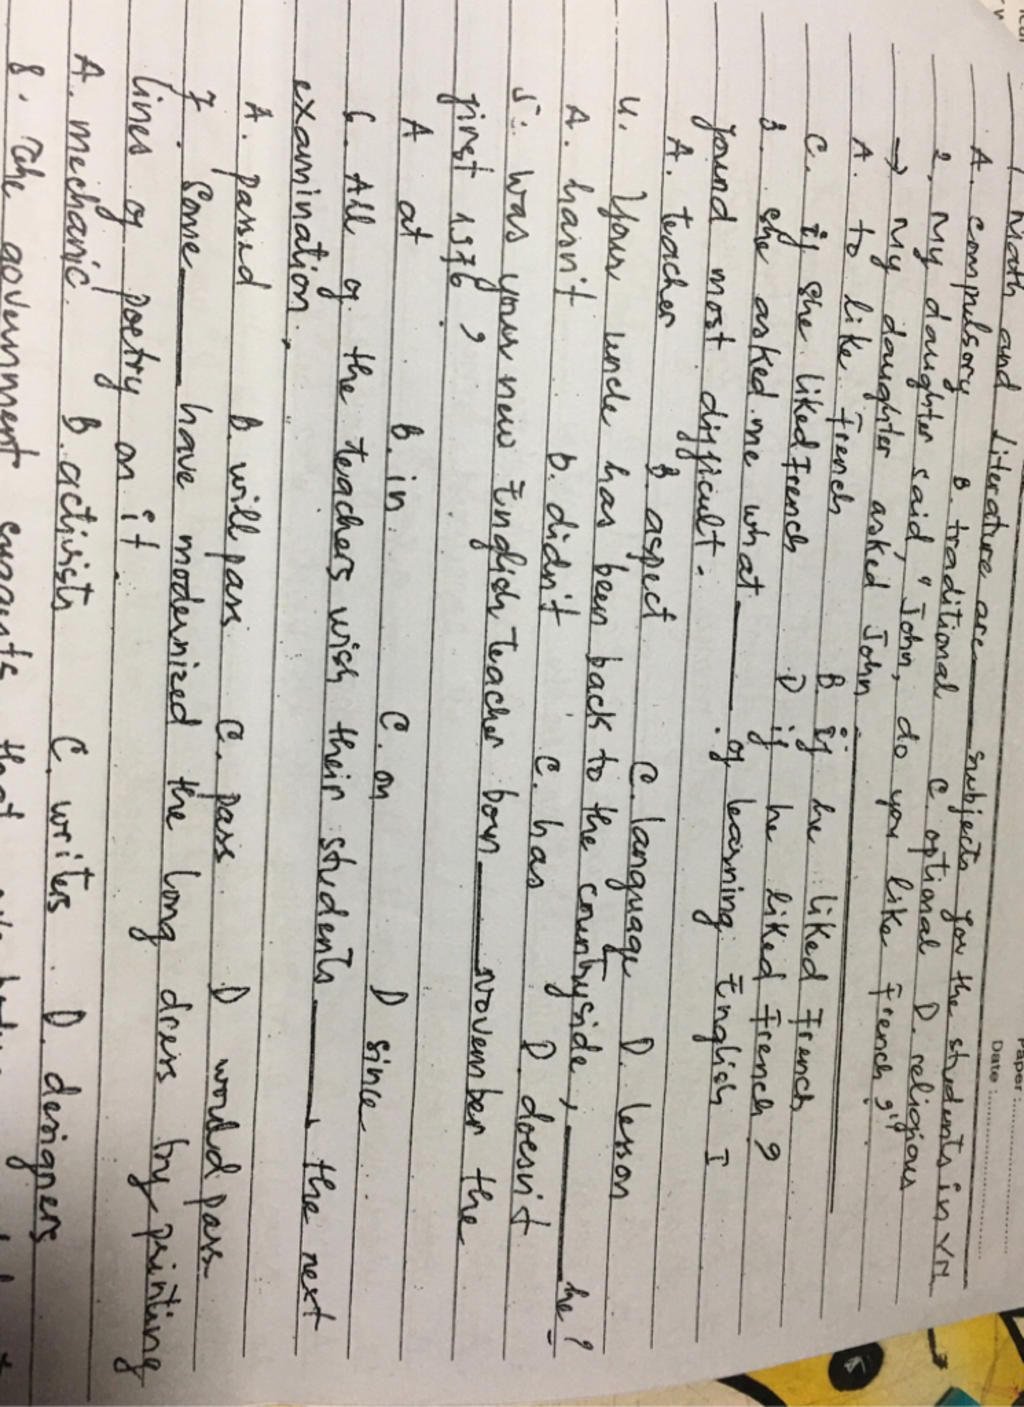 Paper :
Date :
1 Math and literature are subjects for the students in VN
A. compulsory B. traditional C optional D. religious
2. My daughter said, " John, do you like French ?"
→ My daughter asked John
A. to like French B if he liked French
C. if she liked French D if he liked French ?
3. she asked me what of learning English I
found most difficult.
A. teacher B aspect C. language D. lesson
4. Your uncle has been back to the countryside, he?
A. hasn't b. didn't C. has D. doesn't
5. was your new English teacher born november the
first 1976 ?
A at B. in C. on D since
6. All of the teachers wish their students the next
examination.
A. passed B. will pass C. pass D would pass
7. Some have modernized the long dress by printing
lines of poetry on it.
A. mechanic B. activists C. writers D. designers
8. The government suggests that